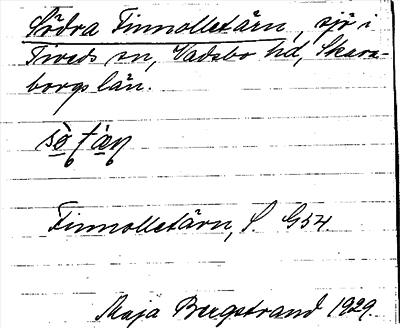 Södra Finnolletärn, sjö i
Tiveds sn, Vadsbo hd, Skara-
borgs län.
Finnolletärn, S. G54.
Maja Bergstrand 1929.